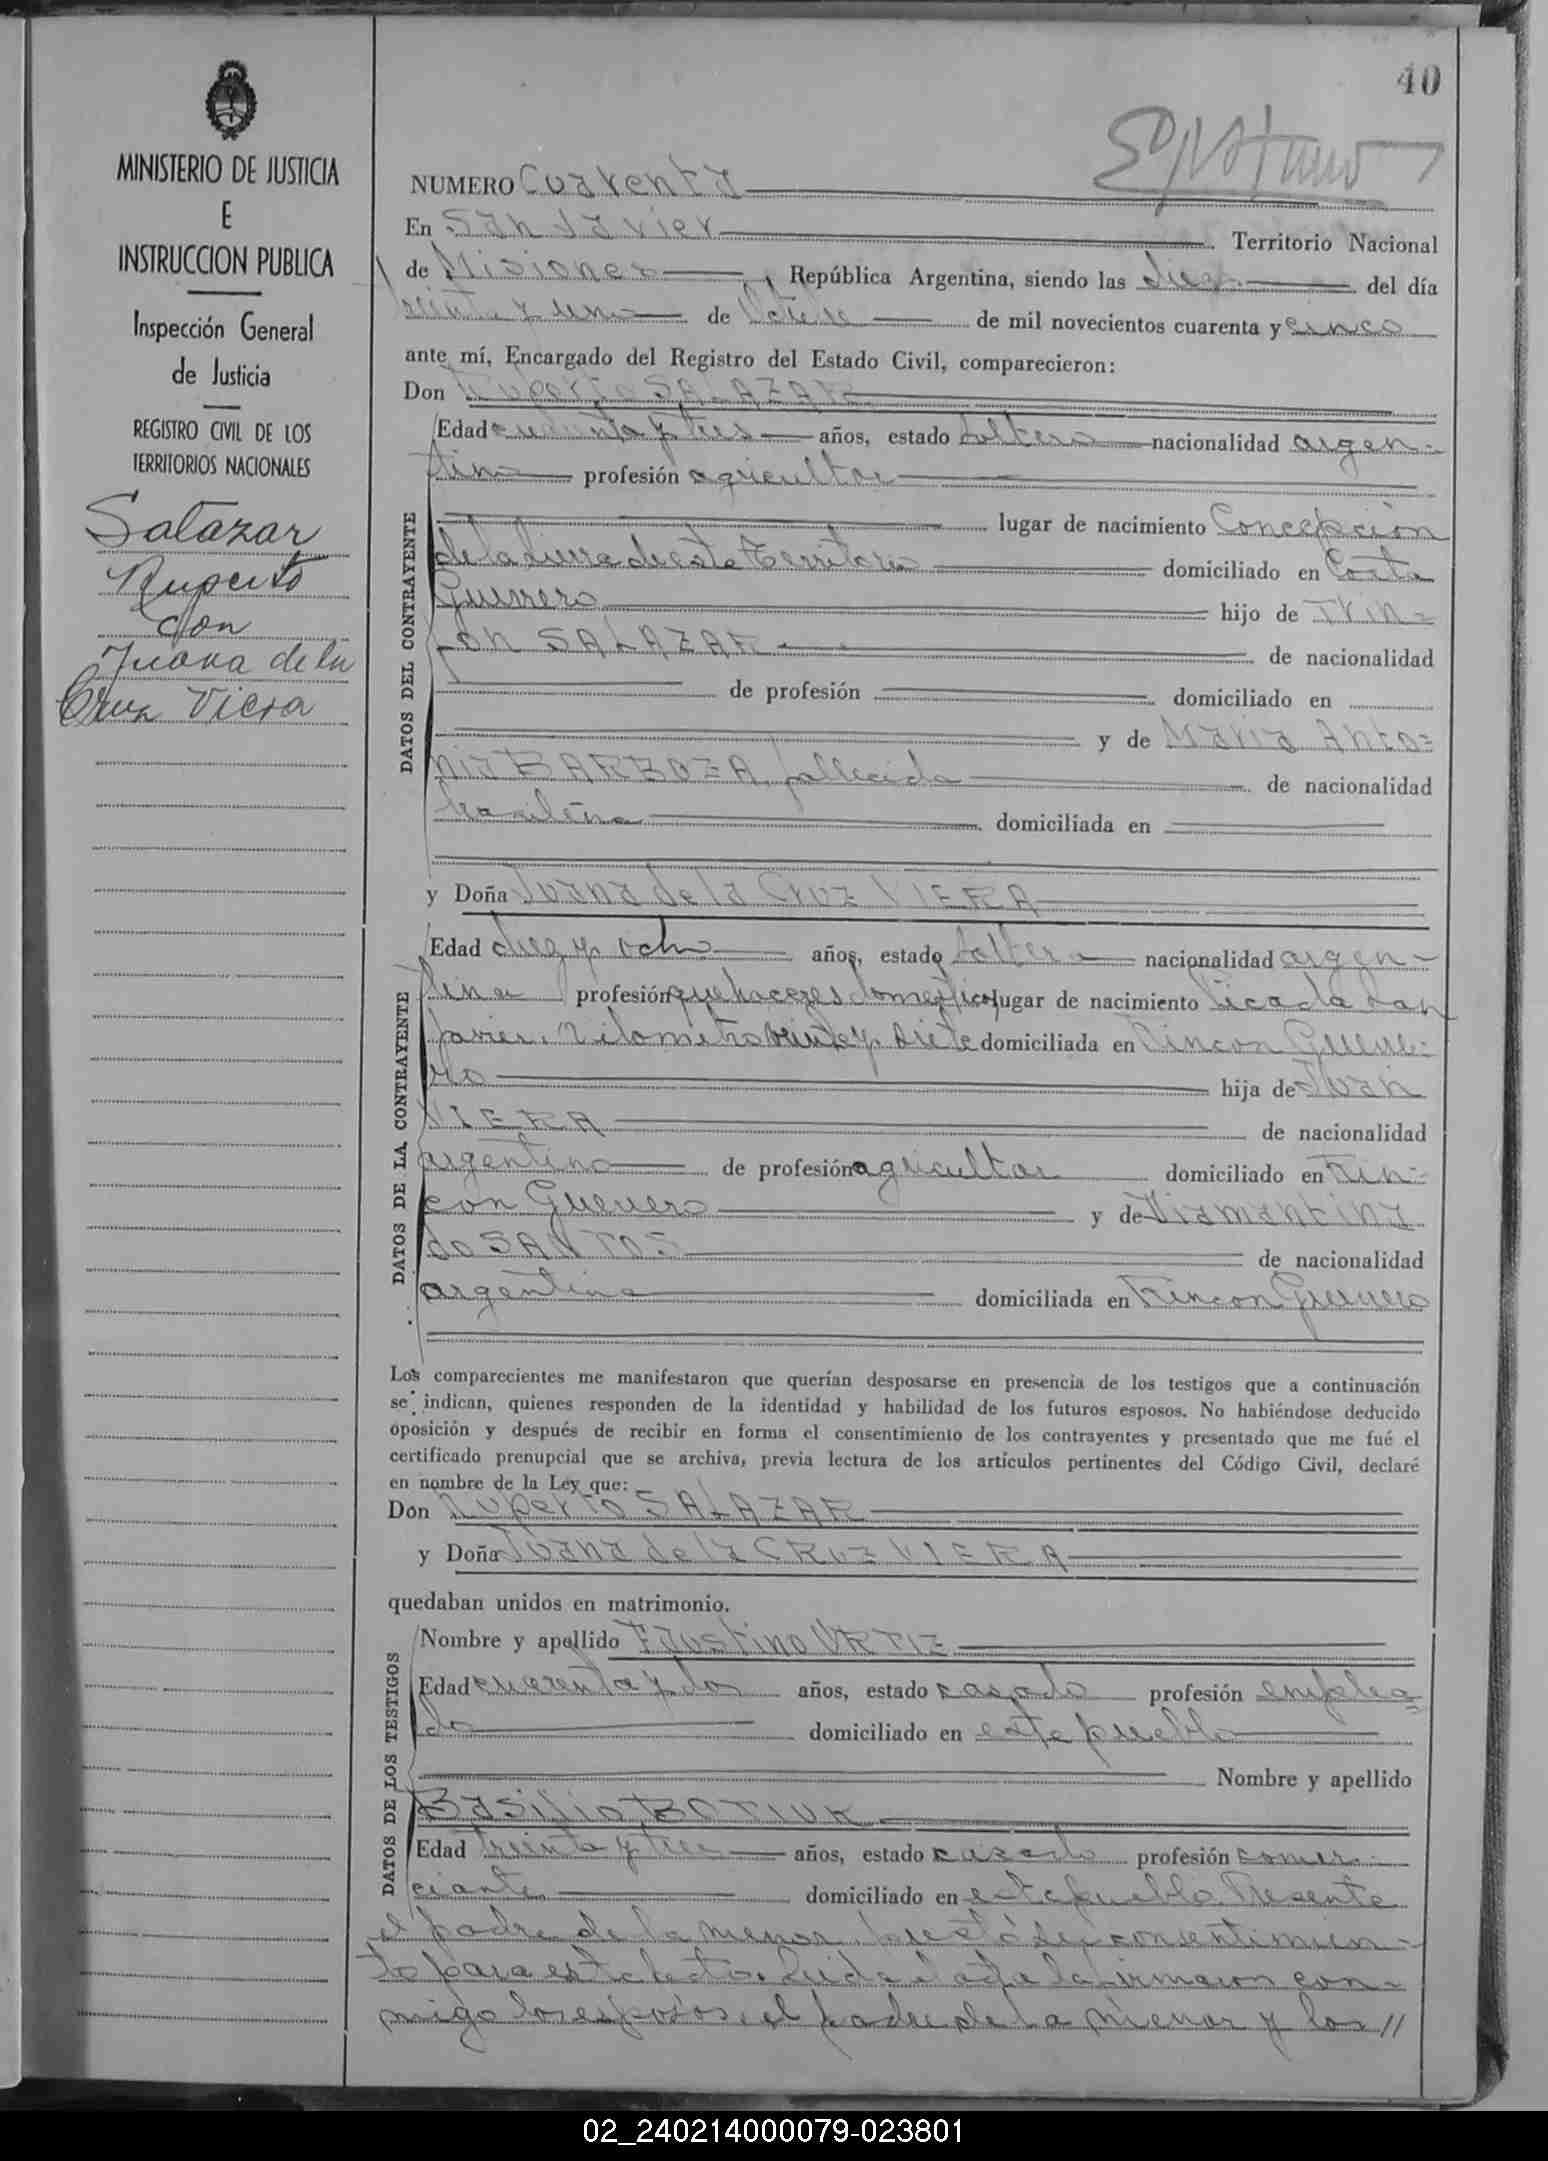 40
MINISTERIO DE JUSTICIA
E
INSTRUCCION PUBLICA
Inspección General
de Justicia
REGISTRO CIVIL DE LOS
TERRITORIOS NACIONALES
Salazar
Ruperto
con
Juana de la
Cruz Viera
NUMERO Cuarenta
En San Javier Territorio Nacional
de Misiones, República Argentina, siendo las diez del día
treinta y uno de Octubre de mil novecientos cuarenta y cinco
ante mí, Encargado del Registro del Estado Civil, comparecieron:
Don Ruperto SALAZAR
DATOS DEL CONTRAYENTE
Edad cuarenta y tres años, estado soltero nacionalidad argen-
tino profesión agricultor
lugar de nacimiento Concepción
de la Sierra de este Territorio domiciliado en Costa
Guerrero hijo de
SALAZAR de nacionalidad
de profesión domiciliado en
y de Maria Anto=
nia BARBOZA, fallecida de nacionalidad
brasileña domiciliada en
y Doña Juana de la Cruz VIERA
DATOS DE LA CONTRAYENTE
Edad diez y ocho años, estado soltera nacionalidad argen-
tina profesión quehaceres domesticos lugar de nacimiento Picada San
Javier, Kilometro veinte y siete domiciliada en Rincon Guerre-
ro hija de Juan
VIERA de nacionalidad
argentino de profesión agricultor domiciliado en Rin-
con Guerrero y de Diamantina
do SANTOS de nacionalidad
argentina domiciliada en Rincon Guerrero
Los comparecientes me manifestaron que querían desposarse en presencia de los testigos que a continuación
se indican, quienes responden de la identidad y habilidad de los futuros esposos. No habiéndose deducido
oposición y después de recibir en forma el consentimiento de los contrayentes y presentado que me fué el
certificado prenupcial que se archiva, previa lectura de los artículos pertinentes del Código Civil, declaré
en nombre de la Ley que:
Don Ruperto SALAZAR
y Doña Juana de la CRUZ VIERA
quedaban unidos en matrimonio.
DATOS DE LOS TESTIGOS
Nombre y apellido Faustino ORTIZ
Edad cuarenta y dos años, estado casado profesión emplea=
do domiciliado en este pueblo
Nombre y apellido
Basilio BOTIUK
Edad treinta y tres años, estado casado profesión comer-
ciante domiciliado en este pueblo. Presente
el padre de la menor, prestó su consentimien-
to para este acto. Leida el acta la firmaron con-
migo los esposos, el padre de la menor y los //
02_240214000079-023801